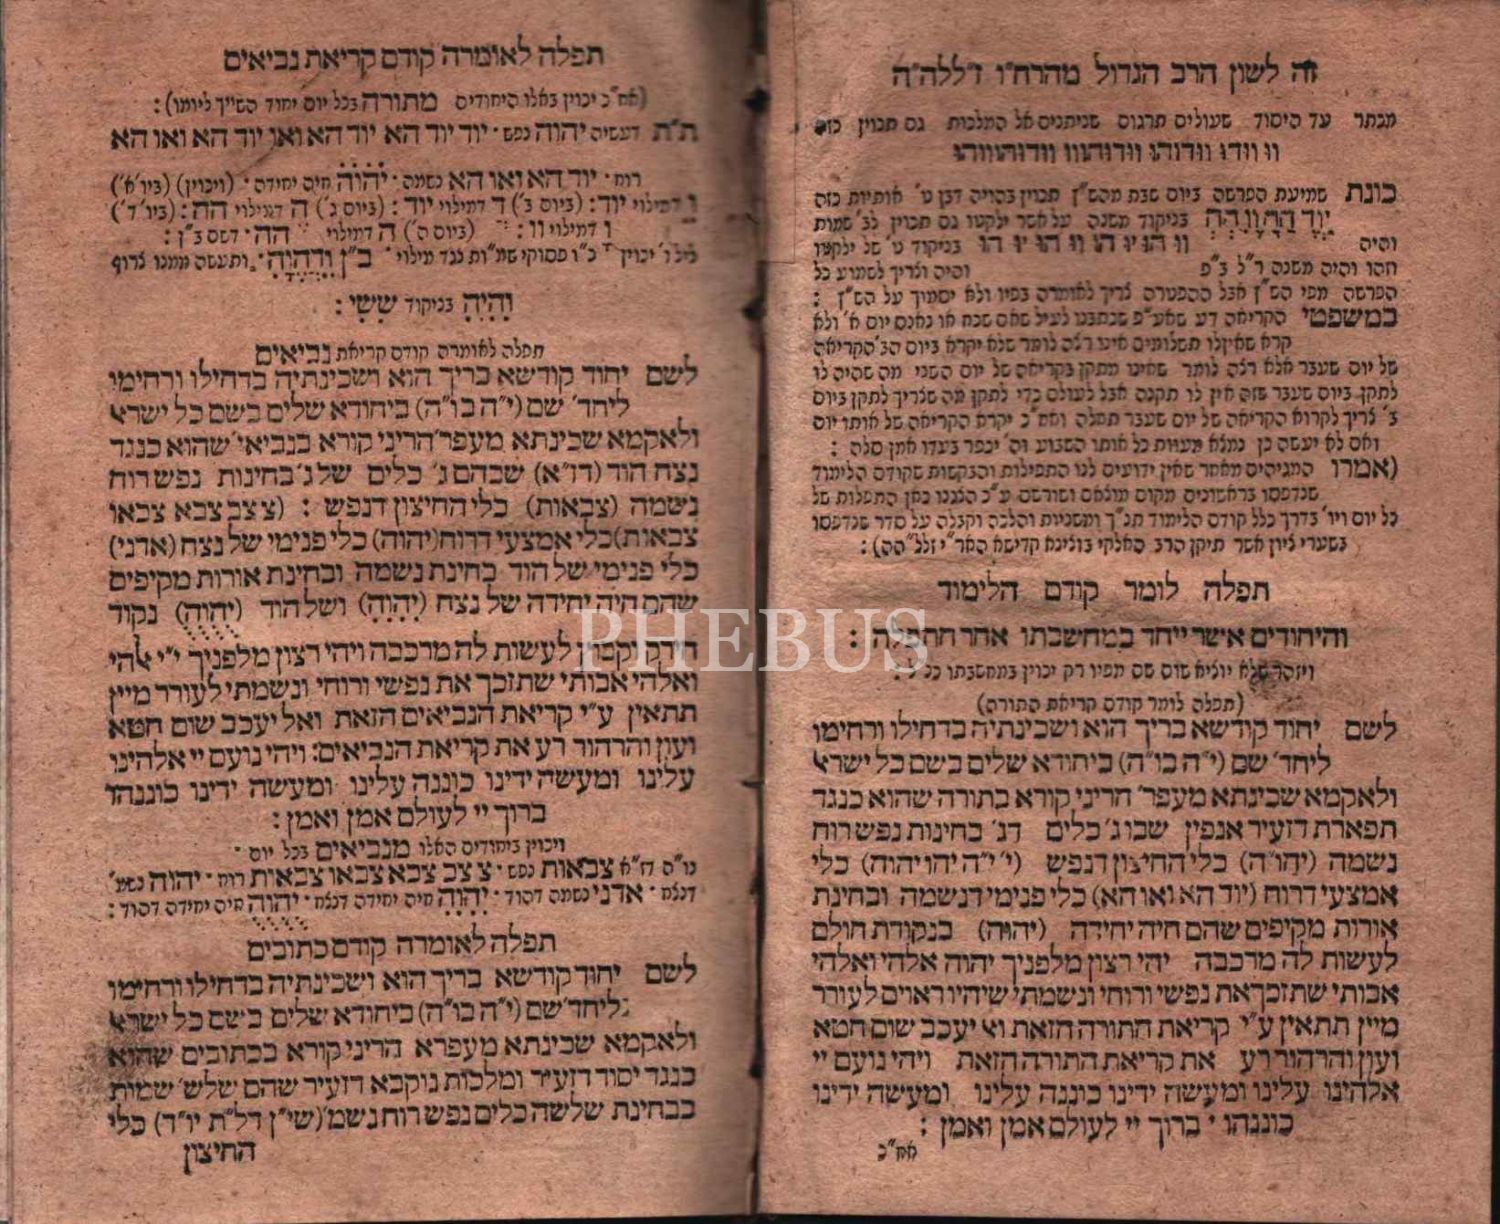 זה לשון הרב הגדול מהרח"ו ז"ללה"ה
מכתר עד היסוד שעולים תרגום שניתנים אל המלכות גם תכוין כזה
וו וודו וודוהו וודוהווו וודוהוווהו
כונת שמיעת הפרשה ביום שבת מהש"ן תכוין בהויה דבן ט' אותיות כזה
בניקוד משנה על אשר ילקטו גם תכוין לב' שמות
והיה וו הו יו הו וו הו יו הו בניקוד ט' של ילקטו
וזהו והיה משנה ר"ל ב"פ והיה וצריך לשמוע כל
הפרשה מפי הש"ן אבל ההפטרה צריך לאומרה בפיו ולא יסמוך על הש"ן :
במשפטי הקריאה דע שאע"פ שכתבנו לעיל שאם שכח או נאנס יום א' ולא
קרא שאין לו תשלומים אינו רצה לומר שלא יקרא ביום הב' הקריאה
של יום שעבר אלא רצה לומר שאינו מתקן בקריאה של יום השני מה שהיה לו
לתקן ביום שעבר שזה אין לו תקנה אבל לעולם כדי לתקן מה שצריך לתקן ביום
ב' צריך לקרוא הקריאה של יום שעבר תפלה ואח"כ יקרא הקריאה של אותו יום
ואם לא יעשה כן נמצא מעוות כל אותו השבוע וה' יכפר בעדו אמן סלה :
(אמרו המגיהים מאחר שאין ידועים לנו התפילות והבקשות שקודם הלימוד
שנדפסו בראשונים מקום מוצאם ושורשם ע"כ הצגנו כאן התפלות של
כל יום ויו' בדרך כלל קודם הלימוד תנ"ך ומשניות והלכה וקבלה על סדר שנדפסו
בשערי ציון אשר תיקן הרב האלקי בוצינא קדישא האר"י זלל"הה) :
תפלה לומר קודם הלימוד
והיחודים אשר ייחד במחשבתו אחר התפלה :
ויזהר שלא יוציא שום שם מפיו רק יכוין במחשבתו
(תפלה לומר קודם קריאת התורה)
לשם יחוד קודשא בריך הוא ושכינתיה בדחילו ורחימו
ליחד' שם (י"ה בו"ה) ביחודא שלים בשם כל ישראל
ולאקמא שכינתא מעפר' הריני קורא בתורה שהוא כנגד
תפארת דזעיר אנפין שבו ג' כלים דג' בחינות נפש רוח
נשמה (יהו"ה) כלי החיצון דנפש (י' י"ה יהו יהוה) כלי
אמצעי דרוח (יוד הא ואו הא) כלי פנימי דנשמה ובחינת
אורות מקיפים שהם חיה יחידה (יהוה) בנקודת חולם
לעשות לה מרכבה יהי רצון מלפניך יהוה אלהי ואלהי
אבותי שתזכך את נפשי ורוחי ונשמתי שיהיו ראוים לעורר
מיין תתאין ע"י קריאת התורה הזאת ואל יעכב שום חטא
ועון והרהור רע את קריאת התורה הזאת ויהי נועם יי
אלהינו עלינו ומעשה ידינו כוננה עלינו ומעשה ידינו
כוננהו · ברוך יי לעולם אמן ואמן :
אח"כ
תפלה לאומרה קודם קריאת נביאים
(אח"כ יכוין באלו היחודים מתורה בכל יום יחוד השייך ליומו) :
ת"ת דעשיה יהוה נפש · יוד יוד הא יוד הא ואו יוד הא ואו הא
רוח · יוד הא ואו הא נשמה · יהוה חיה יחידה · (ויכוין) (ביו'א')
ו דמילוי יוד : (ביום ב') ד דמילוי יוד : (ביום ג') ה דמילוי הה : (ביו'ד')
ו דמילוי וו : (ביום ה') ה דמילוי הה · דשם ב"ן :
ביו' ו' יכוין כ"ו פסוקי שמ"ות כנגד מילוי · ב"ן ותעשה ממנו צרוף
והיה בניקוד ששי :
תפלה לאומרה קודם קריאת נביאים
לשם יחוד קודשא בריך הוא ושכינתיה בדחילו ורחימו
ליחד' שם (י"ה בו"ה) ביחודא שלים בשם כל ישראל
ולאקמא שכינתא מעפר' הריני קורא בנביאי' שהוא כנגד
נצח הוד (דז"א) שבהם ג' כלים של ג' בחינות נפש רוח
נשמה (צבאות) כלי החיצון דנפש : (צ צב צבא צבאו
צבאות) כלי אמצעי דרוח (יהוה) כלי פנימי של נצח (אדני)
כלי פנימי של הוד בחינת נשמה ובחינת אורות מקיפים
שהם חיה יחידה של נצח (יהוה) ושל הוד (יהוה) נקוד
חירק וקבוץ לעשות לה מרכבה ויהי רצון מלפניך י"י אלהי
ואלהי אבותי שתזכך את נפשי ורוחי ונשמתי לעורר מיין
תתאין ע"י קריאת הנביאים הזאת ואל יעכב שום חטא
ועון והרהור רע את קריאת הנביאים : ויהי נועם יי אלהינו
עלינו ומעשה ידינו כוננה עלינו ומעשה ידינו כוננהו
ברוך יי לעולם אמן ואמן :
ויכוין ביחודים האלו מנביאים בכל יום ·
נו"ה דז"א צבאות נפש · צ צב צבא צבאו צבאות רוח · יהוה נשמ'
דנצח · אדני נשמה דהוד · יהוה חיה יחידה דנצח · יהוה חיה יחידה דהוד :
תפלה לאומרה קודם כתובים
לשם יחוד קודשא בריך הוא ושכינתיה בדחילו ורחימו
ליחד' שם (י"ה בו"ה) ביחודא שלים בשם כל ישראל
ולאקמא שכינתא מעפרא הריני קורא בכתובים שהוא
כנגד יסוד דזעיר ומלכות נוקבא דזעיר שהם שלש' שמות
בבחינת שלשה כלים נפש רוח נשמ' (שי"ן דל"ת יו"ד) כלי
החיצון
PHEBUS